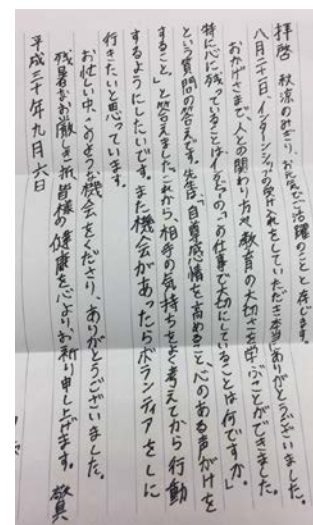 拝啓 秋涼のみぎり、お元気でご活躍のことと存じます。
八月二十一日、インターンシップの受け入れをしていただき本当にありがとうございました。
おかげさまで、人との関わり方や教育の大切さを学ぶことができました。
特に心に残っていることは、「お仕事で大切にしていることは何ですか。」
という質問の答えです。先生は、「自尊感情を高めること、心のある声がけを
すること。」と答えました。これから、相手の気持ちをよく考えてから行動
するようにしたいです。また機会があったらボランティアをしに
行きたいと思っています。
お忙しい中、このような機会をくださり、ありがとうございました。
残暑なお厳しき折、皆様の健康を心よりお祈り申し上げます。 敬具
平成三十年九月六日